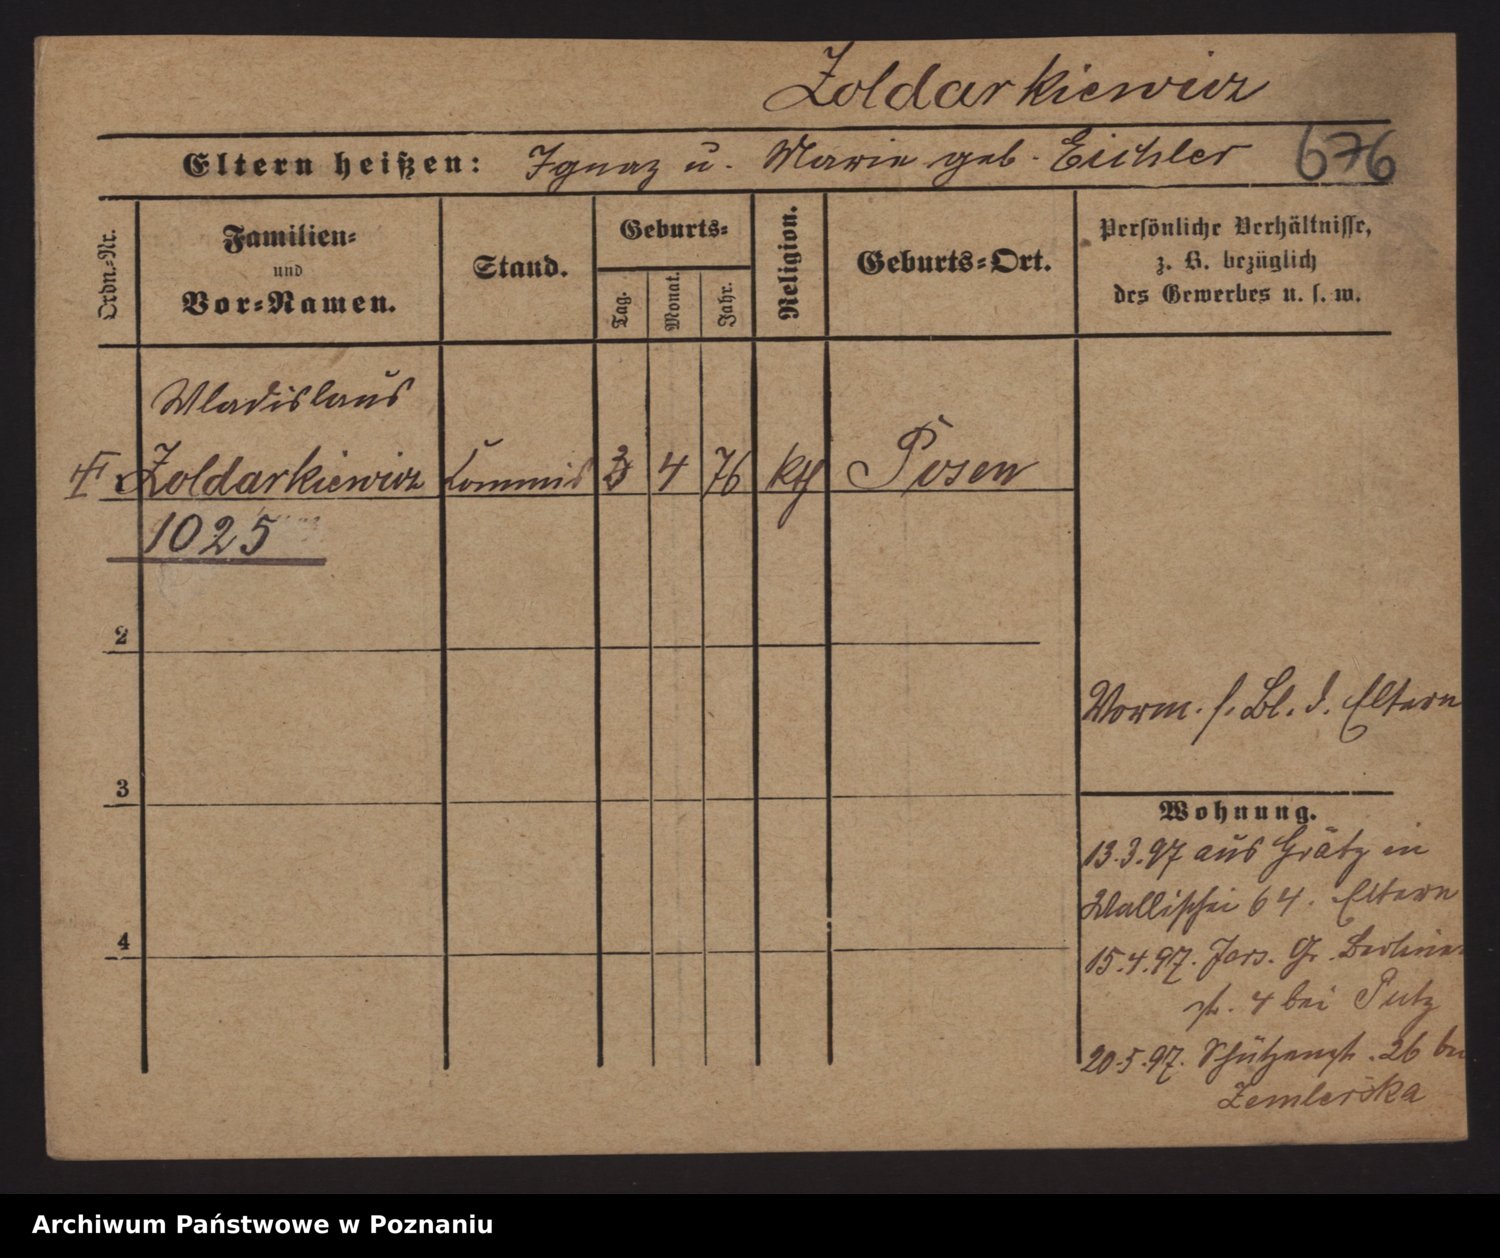 Zoldarkiewicz
Eltern heißen: Ignaz u. Marie geb. Eichler
676
Ordn.-Nr.
Familien-
und
Vor-Namen.
Stand.
Geburts-
Tag.
Monat.
Jahr.
Religion.
Geburts-Ort.
Persönliche Verhältnisse,
z. B. bezüglich
des Gewerbes u. s. w.
Wladislaus
Zoldarkiewicz Commis 3 4 76 kth Posen
1025
2
3
4
Vorm. s. Bl. d. Eltern
Wohnung.
13.3.97 aus Grätz in
Wallischei 64. Eltern
15.4.97. Gr. Berliner
str. 4 bei Putz
20.5.97. Schützenstr. 26 bei
Zemlerska
Archiwum Państwowe w Poznaniu